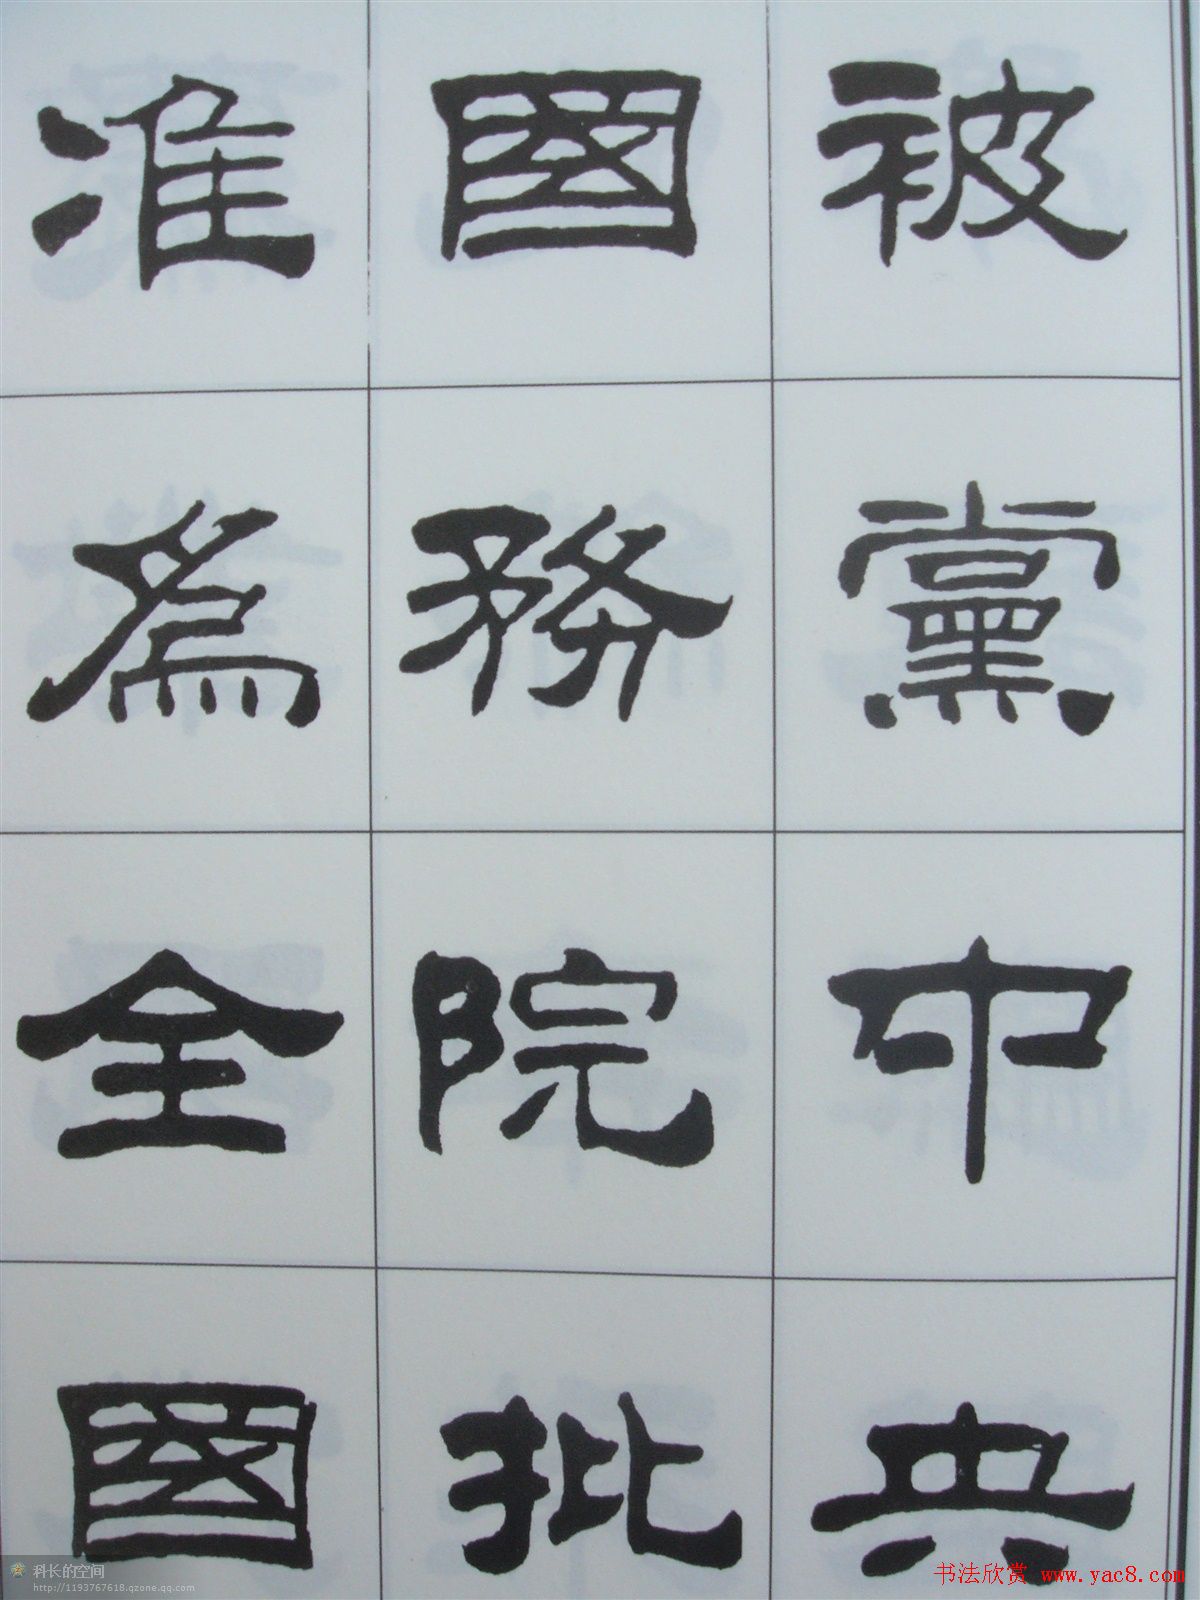 被黨中央
國務院批
准為全國
科长的空间
http://1193767618.qzone.qq.com
书法欣赏 www.yac8.com